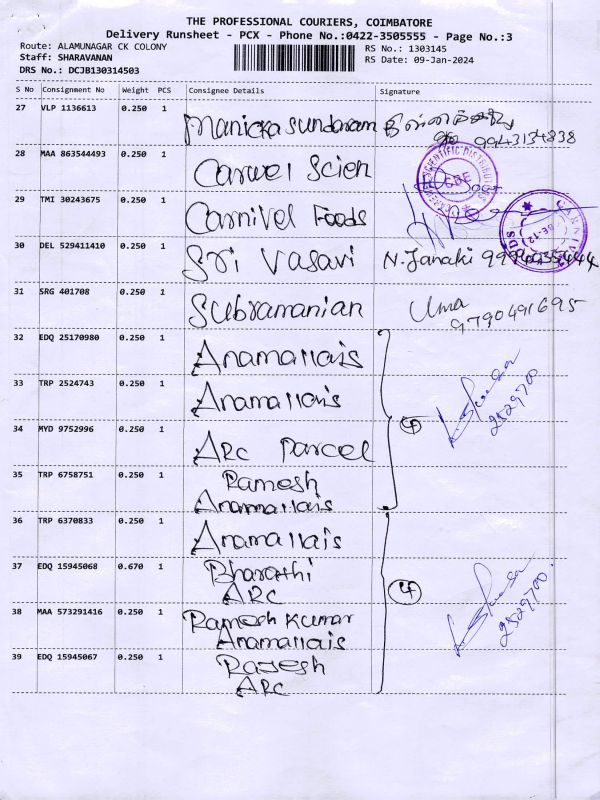 THE PROFESSIONAL COURIERS, COIMBATORE
Delivery Runsheet - PCX - Phone No.:0422-3505555 - Page No.:3
Route: ALAMUNAGAR CK COLONY RS No.: 1303145
Staff: SHARAVANAN RS Date: 09-Jan-2024
DRS No.: DCJB130314503
S No Consignment No Weight PCS Consignee Details Signature
27 VLP 1136613 0.250 1 Manicka Sundaram 9943134838
28 MAA 863544493 0.250 1 Carwel Scien
29 TMI 30243675 0.250 1 Carnivel Foods
30 DEL 529411410 0.250 1 Sri Vasavi N. Janaki
31 SRG 401708 0.250 1 Subramanian Uma
9790491695
32 EDQ 25170980 0.250 1 Anamallais
33 TRP 2524743 0.250 1 Anamallais
2529700
34 MYD 9752996 0.250 1 ARC Parcel
35 TRP 6758751 0.250 1 Ramesh
Anamallais
36 TRP 6370833 0.250 1 Anamallais
37 EDQ 15945068 0.670 1 Bharathi
ARC
38 MAA 573291416 0.250 1 Ramesh Kumar
Anamallais
2529700
39 EDQ 15945067 0.250 1 Rajesh
ARC